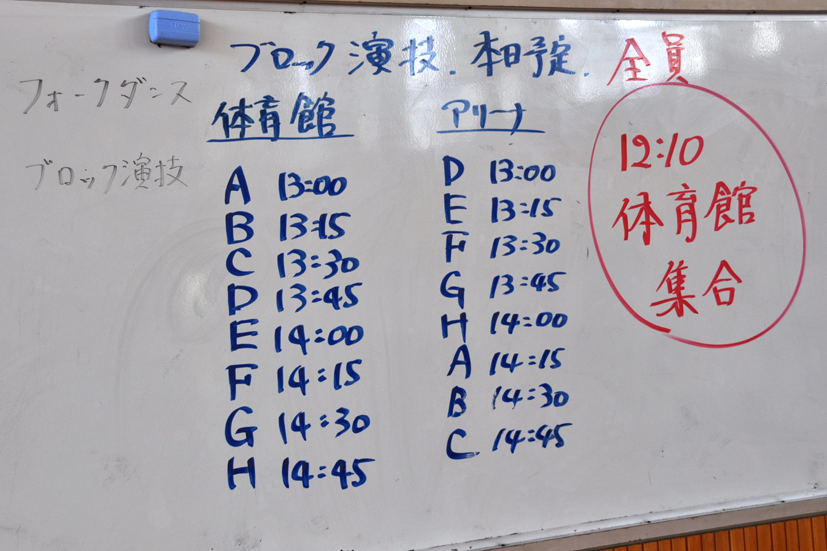 ブロック演技.本日予定.
全員
12:10
体育館
集合
フォークダンス
ブロック演技
体育館
A 13:00
B 13:15
C 13:30
D 13:45
E 14:00
F 14:15
G 14:30
H 14:45
アリーナ
D 13:00
E 13:15
F 13:30
G 13:45
H 14:00
A 14:15
B 14:30
C 14:45